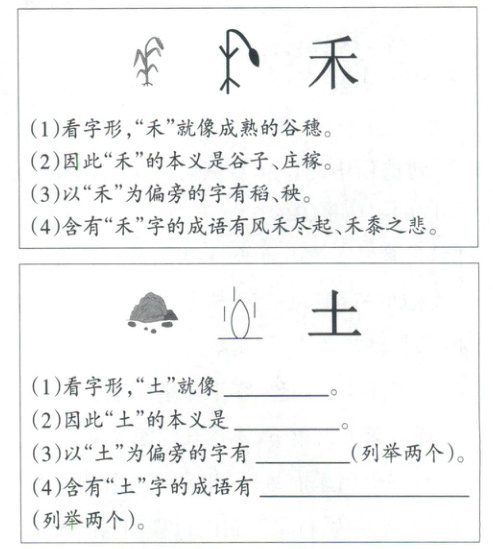 禾
(1)看字形,“禾”就像成熟的谷穗。
(2)因此“禾”的本义是谷子、庄稼。
(3)以“禾”为偏旁的字有稻、秧。
(4)含有“禾”字的成语有风禾尽起、禾黍之悲。
土
(1)看字形,“土”就像________。
(2)因此“土”的本义是________。
(3)以“土”为偏旁的字有________(列举两个)。
(4)含有“土”字的成语有________________
(列举两个)。